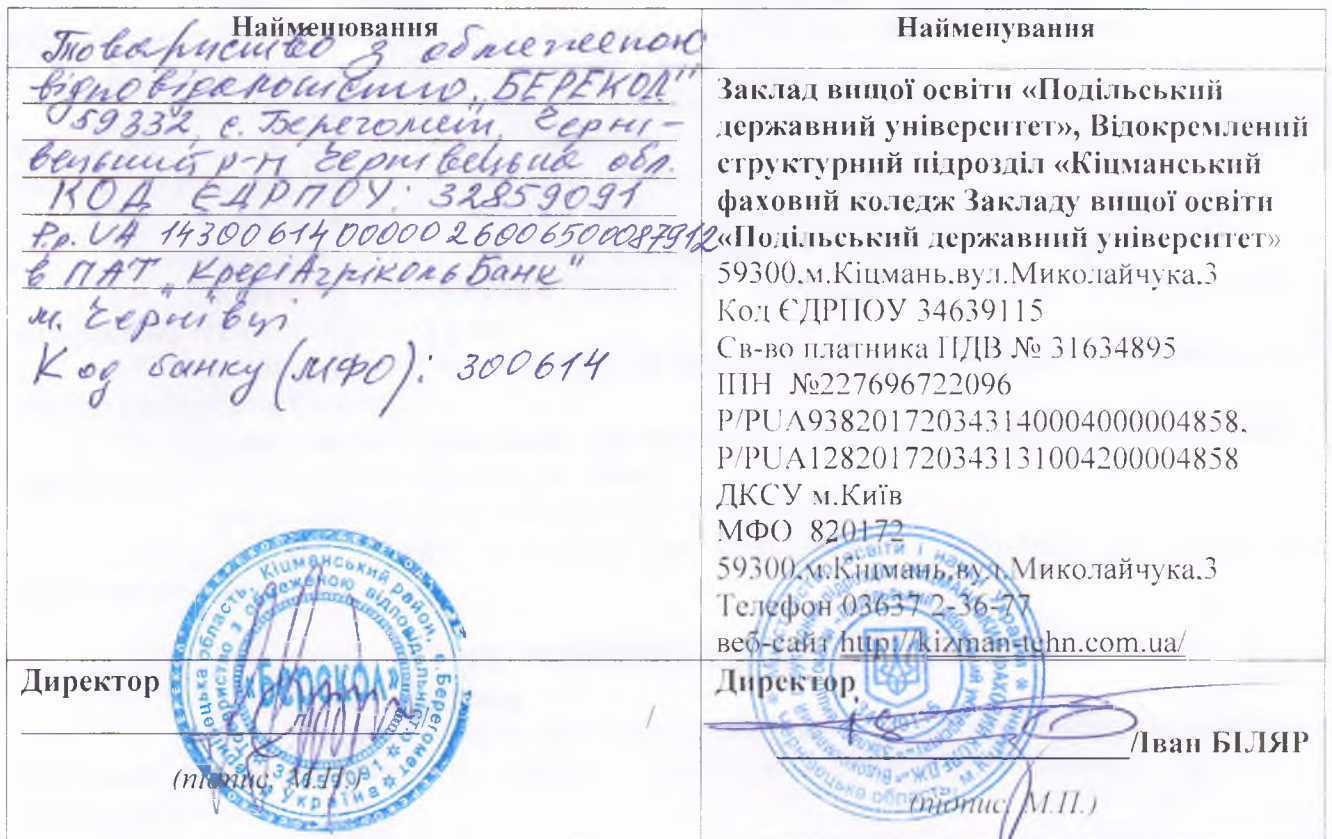 Найменювання
Товариство з обмеженою
відповідальністю „БЕРЕКОЛ"
59332, с. Берегомет, Черні-
вецький р-н Чернівецька обл.
КОД ЄДРПОУ: 32859091
р.р. UA 143006140000026006500087912
в ПАТ „КредіАгріколь Банк"
м. Чернівці
Код банку (МФО): 300614
Директор
/
(підпис, М.П.)
Україна
Кіцманський район, с.Берегомет
Товариство з обмеженою відповідальністю
«Берекол»
Найменування
Заклад вищої освіти «Подільський
державний університет», Відокремлений
структурний підрозділ «Кіцманський
фаховий коледж Закладу вищої освіти
«Подільський державний університет»
59300,м.Кіцмань,вул.Миколайчука,3
Код ЄДРПОУ 34639115
Св-во платника ПДВ № 31634895
ІПН №227696722096
Р/РUA938201720343140004000004858,
Р/РUA128201720343131004200004858
ДКСУ м.Київ
МФО 820172
59300,м.Кіцмань,вул.Миколайчука,3
Телефон 03637 2-36-77
веб-сайт http://kizman-tehn.com.ua/
Директор
/Іван БІЛЯР
(підпис, М.П.)